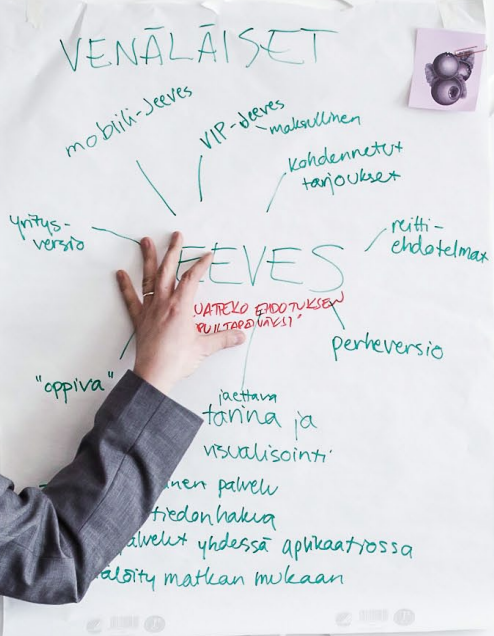 VENÄLÄISET
mobiili-Jeeves
VIP-Jeeves
maksullinen
kohdennetut
tarjoukset
yritys-
versio
EEVES
reitti-
ehdotelmat
EHDOTUKSEN
perheversio
"oppiva"
jaettava
tarina ja
visualisointi
inen palvelu
tiedonhaku
palvelut yhdessä aplikaatiossa
älöity matkan mukaan